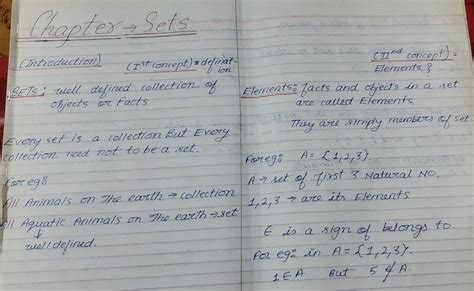 Chapter → Sets
(Introduction)
(Ist concept) * definat-
ion
SETs: well defined collection of
objects or Facts
Every set is a collection But Every
collection need not to be a set.
For eg:
All Animals on The earth → collection
All Aquatic Animals on The earth → set
↓
well defined.
(IInd concept) =
Elements?
Elements: facts and objects in a set
are called Elements.
They are simply members of set.
For eg: A = {1,2,3}.
A → set of first 3 Natural NO.
1,2,3 → are its Elements
∈ is a sign of belongs to.
For eg: in A = {1,2,3}.
1 ∈ A But 5 ∉ A.